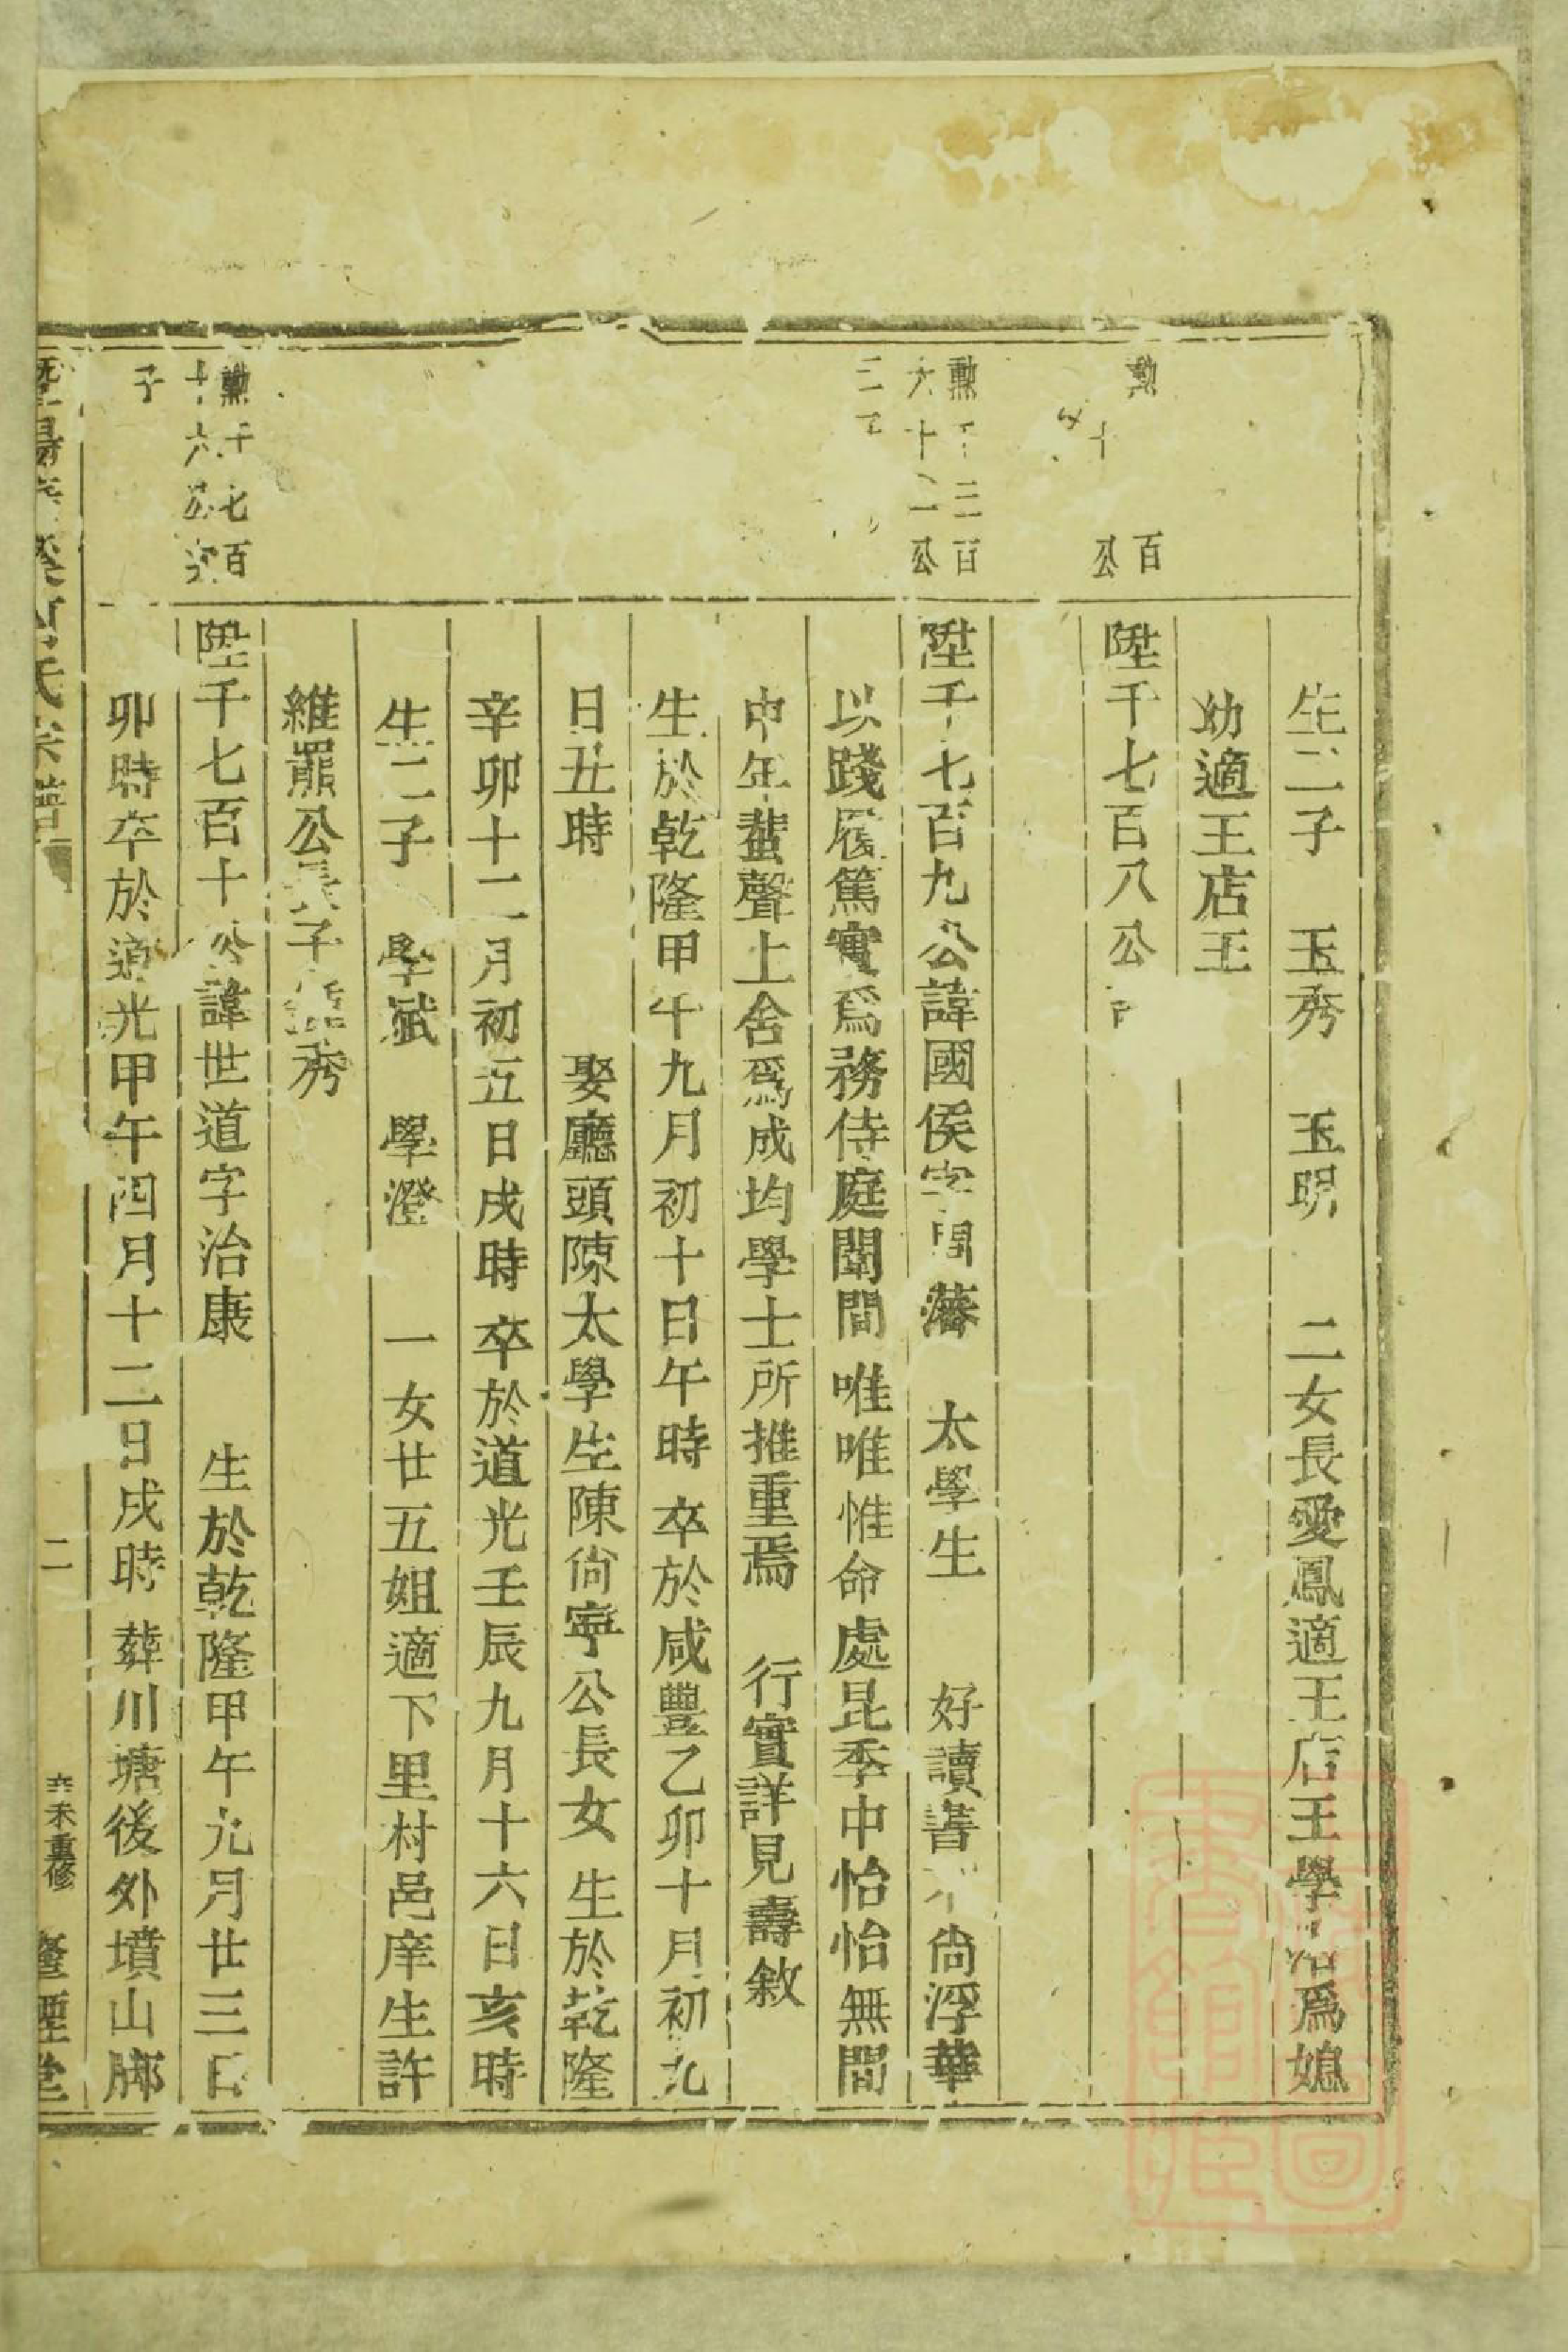 生二子　玉秀　玉明　二女長愛鳳適王店王學爲媳
幼適王店王
勲百
十公
陞千七百八公
勲千三百
六十二公
三子
陞千七百九公諱國侯字藩　太學生　好讀書尙浮華
以踐履篤實爲務侍庭闈間唯唯惟命處昆季中怡怡無間
中年蜚聲上舍爲成均學士所推重焉　行實詳見壽敘
生於乾隆甲午九月初十日午時卒於咸豐乙卯十月初九
日丑時　娶廳頭陳太學生陳尙寧公長女生於乾隆
辛卯十二月初五日戌時卒於道光壬辰九月十六日亥時
生二子　學斌　學澄　一女廿五姐適下里村邑庠生許
維羆公長子秀
勲千七百
十六公次
子
陞千七百十公諱世道字治康　生於乾隆甲午九月廿三日
卯時卒於道光甲午四月十二日戌時葬川塘後外墳山脚
氏宗譜
二
辛未重修
堂